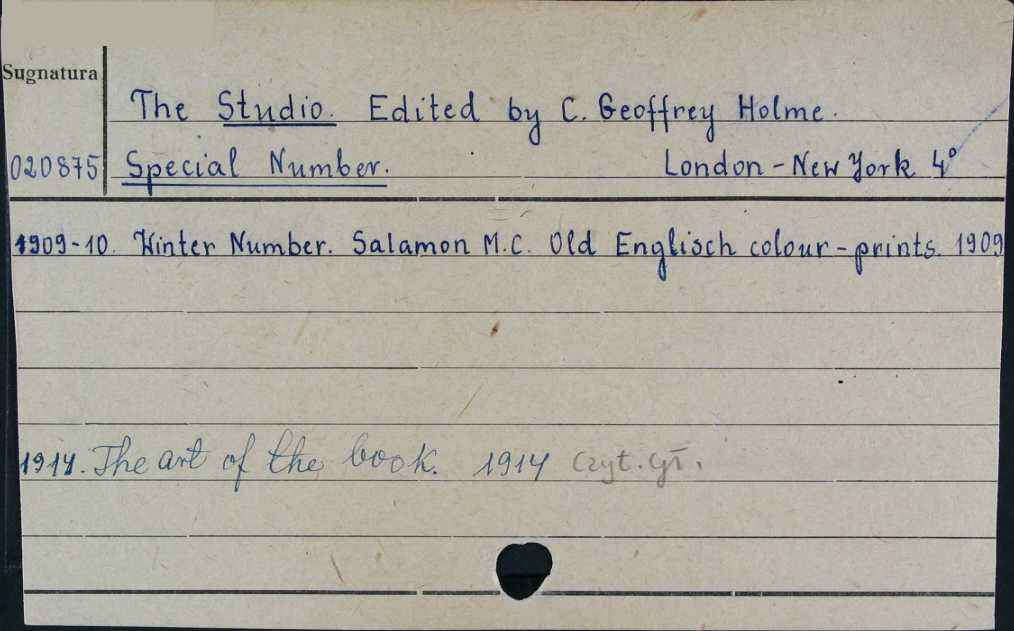 Sugnatura
The Studio. Edited by C. Geoffrey Holme.
020875 Special Number. London - New York 4°
1909-10. Winter Number. Salamon M.C. Old Englisch colour-prints. 1909
1914. The art of the book. 1914 Czyt. gł.